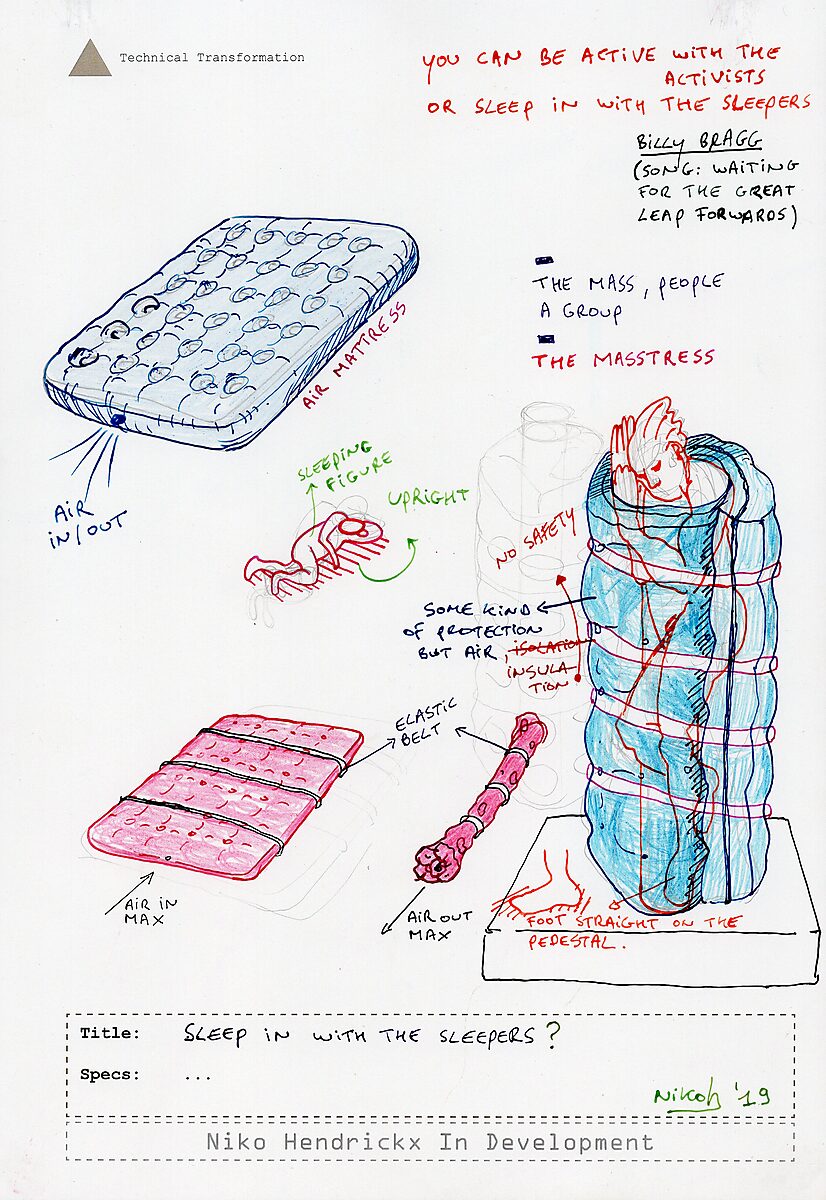 Technical Transformation
YOU CAN BE ACTIVE WITH THE
ACTIVISTS
OR SLEEP IN WITH THE SLEEPERS
BILLY BRAGG
(SONG: WAITING
FOR THE GREAT
LEAP FORWARDS)
THE MASS, PEOPLE
A GROUP
THE MASSTRESS
AIR MATTRESS
AIR
IN/OUT
SLEEPING
FIGURE
UPRIGHT
NO SAFETY
SOME KIND
OF PROTECTION
BUT AIR, ISOLATION
INSULA-
TION
ELASTIC
BELT
AIR IN
MAX
AIR OUT
MAX
FOOT STRAIGHT ON THE
PEDESTAL.
Title: SLEEP IN WITH THE SLEEPERS?
Specs: ...
Nikoh '19
Niko Hendrickx In Development